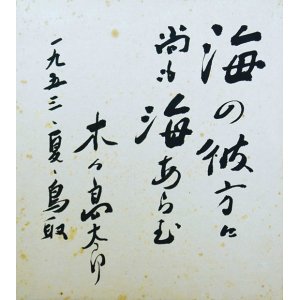 海の彼方に
尚も海あらむ
木々高太郎
一九五三、夏、鳥取